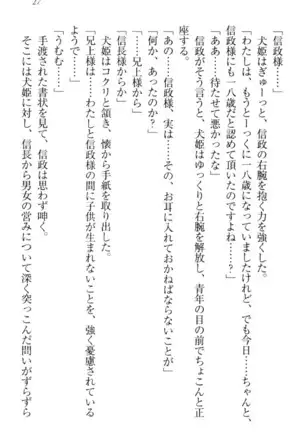 27
犬姫はぎゅーっと、信政の右腕を抱く力を強くした。
「わたしは、もうとーっくに一八歳になっていましたけれど、でも今日……ちゃんと、
信政様にも一八歳だと認めて頂いたのですよね……？」
「ああ、待たせて悪かったな」
信政がそう言うと、犬姫はゆっくりと右腕を解放し、青年の目の前でちょこんと正
座する。
「あの……信政様、実は……その、お耳に入れておかねばならないことが」
「何か、あったのか？」
「……兄上様から」
「信長様からか」
犬姫はコクリと頷き、懐から手紙を取り出した。
「兄上様は……わたしと信政様の間に子供が生まれないことを、強く憂慮されている
ようで」
「うむむ……」
手渡された書状を見て、信政は思わず呻く。
そこには犬姫に対し、信長から男女の営みについて深く突っこんだ問いがずらずら